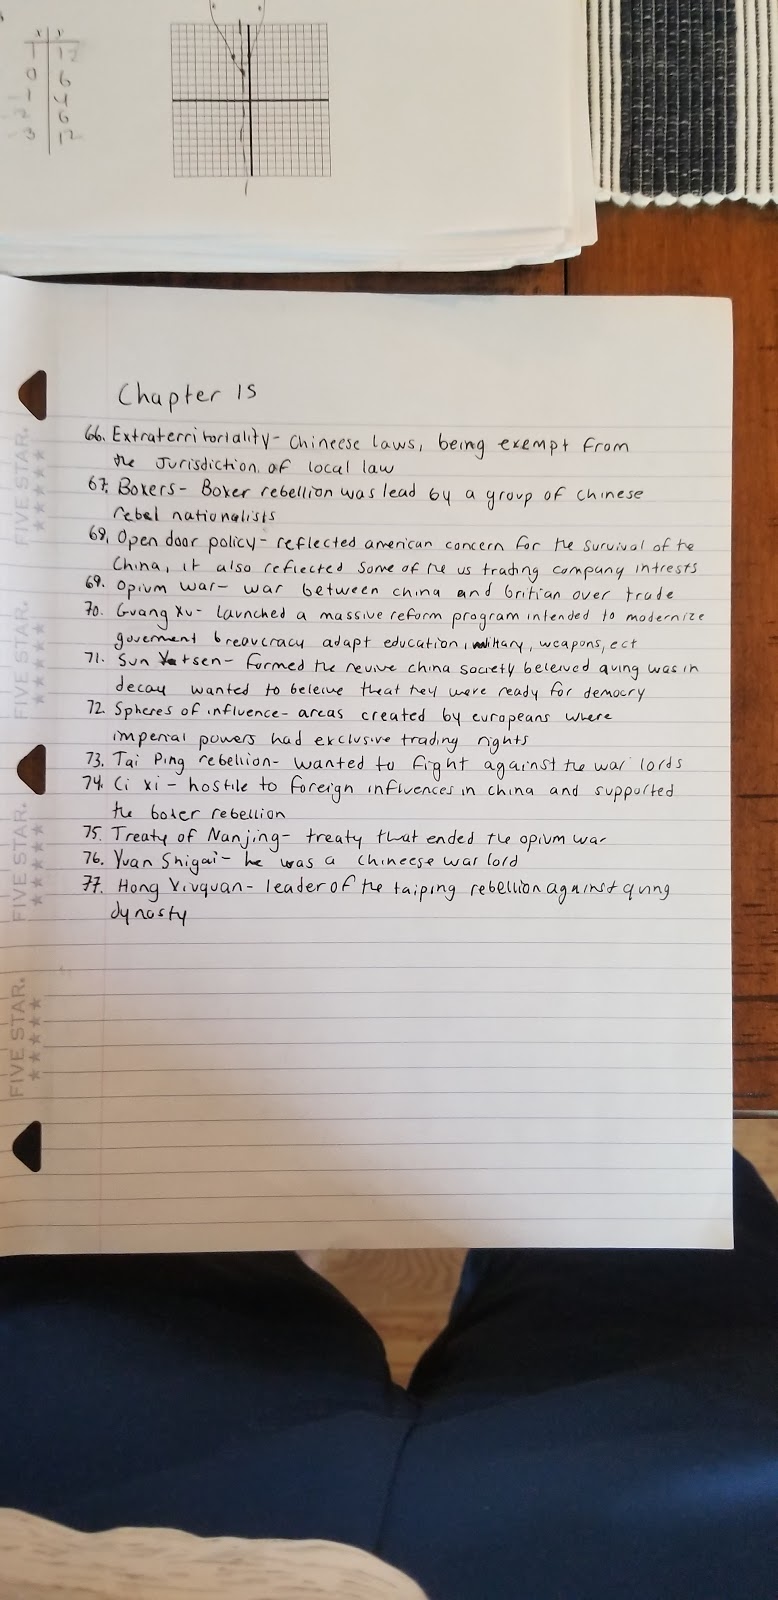 x y
-1 12
0 6
-1 4
6
12
Chapter 15
66. Extraterritoriality- Chineese laws, being exempt from
the Jurisdiction of local law
67. Boxers- Boxer rebellion was lead by a group of chinese
rebel nationalists
68. Open door policy- reflected american concern for the survival of the
China, it also reflected some of the us trading company intrests
69. Opium war- war between china and britian over trade
70. Guang xu- launched a massive reform program intended to modernize
goverment breavcracy adapt education, military, weapons, ect
71. Sun Yatsen- formed the revive china society beleived qing was in
decay wanted to beleive that they were ready for democry
72. Spheres of influence- areas created by europeans where
imperial powers had exclusive trading rights
73. Tai Ping rebellion- wanted to fight against the war lords
74. Ci xi- hostile to foreign influences in china and supported
the boxer rebellion
75. Treaty of Nanjing- treaty that ended the opium war
76. Yuan Shigai- he was a chineese war lord
77. Hong Xivquan- leader of the taiping rebellion against qing
dynasty
FIVE STAR.
FIVE STAR.
FIVE STAR.
FIVE STAR.